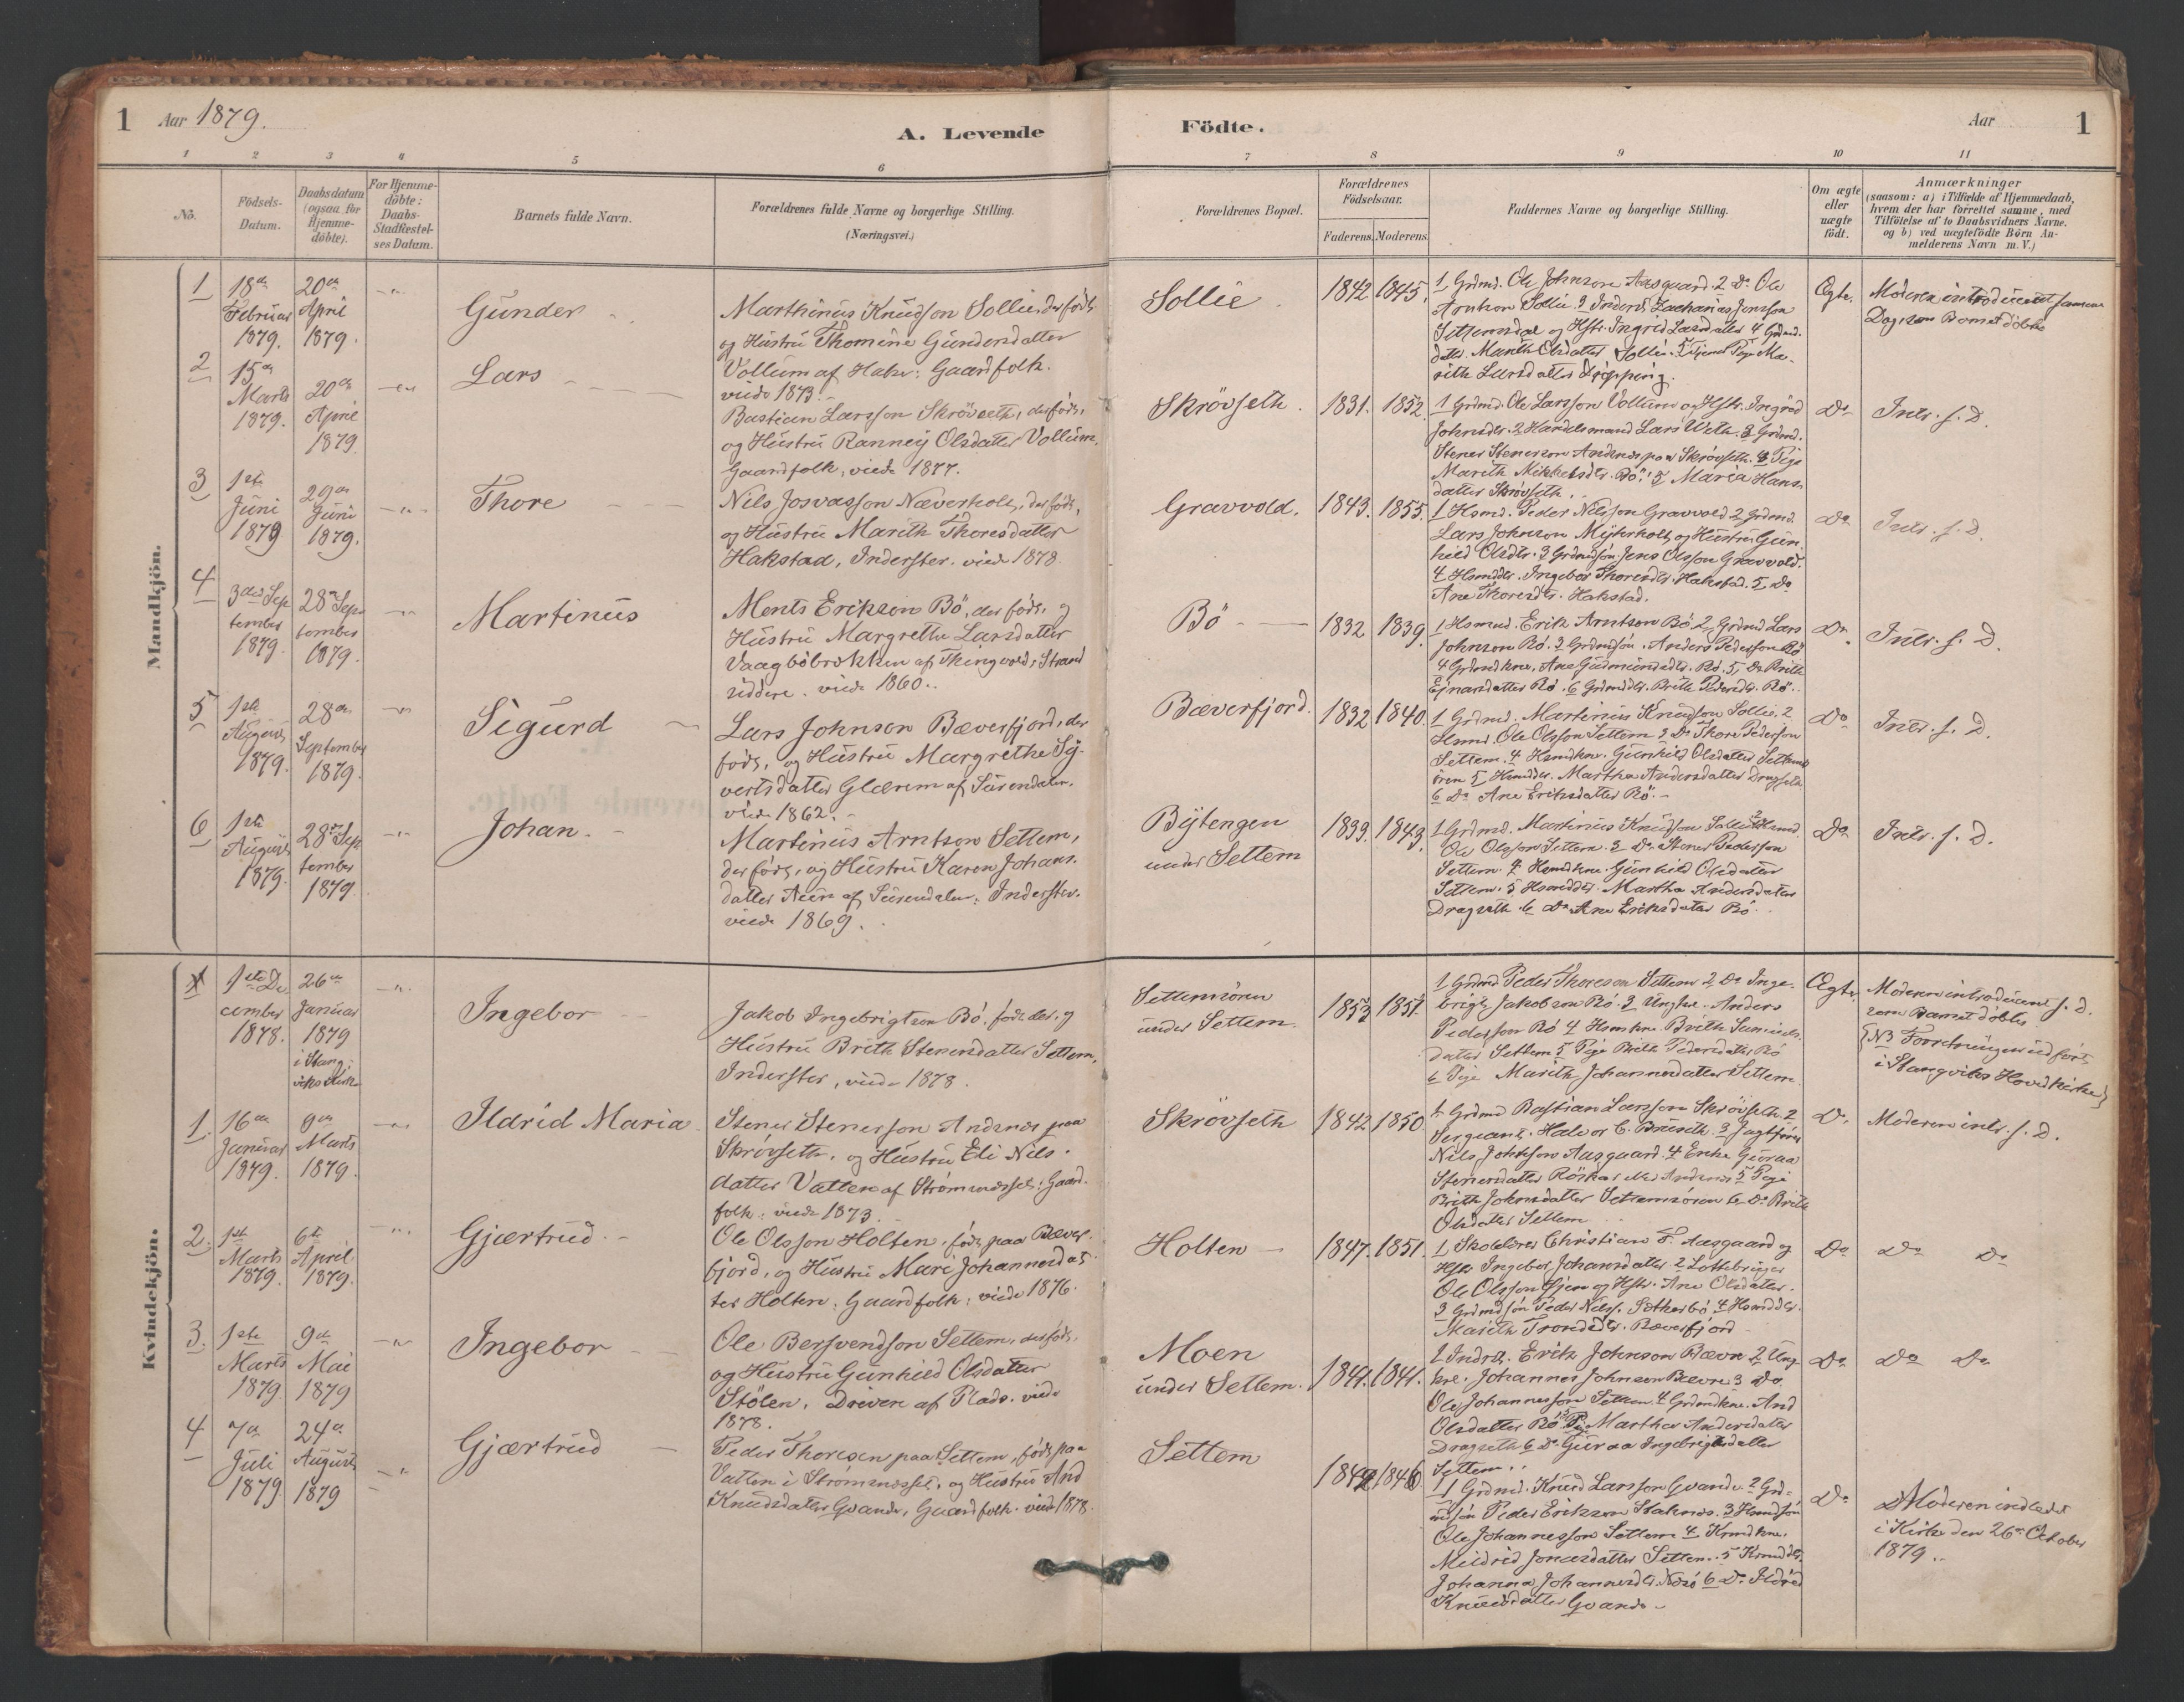 1 Aar 1879.
A. Levende Födte.
Aar 1
1 2 3 4 5 6 7 8 9 10 11
Nö.
Födsels-Datum.
Daabsdatum (ogsaa for Hjemme-döbte).
For Hjemme-döbte: Daabs-Stadfæstel-ses Datum.
Barnets fulde Navn.
Forældrenes fulde Navne og borgerlige Stilling.
(Næringsvei.)
Forældrenes Bopæl.
Forældrenes Födselsaar.
Faderens. Moderens.
Faddernes Navne og borgerlige Stilling.
Om ægte eller uægte födt.
Anmærkninger
(saasom: a) i Tilfælde af Hjemmedaab,
hvem der har forrettet samme, med
Tilföielse af to Daabsvidners Navne.
og b) ved uægtefödte Börn An-
melderens Navn m. V.)
Mandkjön.
1
18de Februar 1879.
20de April 1879.
Gunder
Marthinus Knudson Sollie, der födt,
og Hustru Thomine Gundersdatter
Vollum af Halse: Gaardfolk.
viede 1873.
Sollie
1842 1845.
1 Grdmd. Ole Johnson Aasgaard. 2 Do Ole
Arntson Sollie. 3 Inderst Zacharias Jonsson
Settemsdal og Hstr. Ingrid Larsdatter 4 Grdmd.
datter Marith Olsdatter Sollie. 5 Pige Ma-
rith Larsdatter
Ægte.
Moderen introduceret samme
Dag som Barnet döbtes
2
15de Marts 1879.
20de April 1879
Lars
Bastian Larsson Skrövseth, der födt,
og Hustru Ranney Olsdatter Vollum,
Gaardfolk, viede 1877.
Skrövseth.
1831. 1852.
1 Grdmd. Ole Larsson Vollum og Hstr. Ingrid
Johnsdtr. 2 Handelsmand Lars Weth. 3 Grdmd.
Stener Stenerson Andsnes paa Skrövseth. 4 Pige
Marith Mikkelsdtr. Bö. 5 Maria Hans-
datter Skrövseth.
Do
Intr. s. D.
3
1ste Juni 1879
29de Juni 1879.
Thore
Nils Josvasson Næverholt, der födt,
og Hustru Marith Thoresdatter
Hakstad, Inderster. viede 1878
Gravvold.
1843. 1855.
1 Hsmd. Peder Nilsson Gravvold 2 Grdmd.
Lars Johnson Myrholt og Hustru Gun
hild Olsdtr. 3 Grdmdsön Jens Olsson Gravvold.
4 Hsmddtr. Ingebor Thoresdtr. Hakstad. 5 Do
Ane Thoresdtr. Hakstad.
Do
Intr. s. D.
4
3die September 1879.
28de September 1879.
Martinus
Ments Erikson Bö, der födt, og
Hustru Margrethe Larsdatter
Vaagböbrekken af Thingvold, Strand
siddere. viede 1860.
Bö
1832 1839.
1 Hsmd. Erik Arntson Bö. 2 Grdmd Lars
Johnson Bö. 3 Grdmdsön. Anders Pederson Bö
4 Grdmdkne. Ane Gudmundsdtr. Bö. 5 Do Brith
Ejnarsdatter Bö. 6 Grdmddtr. Brith Pedersdtr. Bö.
Do
Intr. s. D.
5
1ste August 1879.
28de September 1879.
Sigurd
Lars Johnson Bæverfjord, der
födt, og Hustru Margrethe Sy-
vertsdatter Glærem af Surendalen.
viede 1862.
Bæverfjord.
1832 1840.
1 Grdmd. Martinus Knudson Sollie. 2
Hsmd. Ole Olsson Settem 3 Do Thore Pederson
Settem. 4 Hsmdkne. Gunhild Olsdatter Settems
ören 5 Hsmddtr. Martha Andersdatter Dragseth
6 Do Ane Eriksdatter Bö.
Do
Intr. s. D.
6
1ste August 1879.
28de September 1879.
Johan
Martinus Arntson Settem,
der födt, og Hustru Karen Johans-
datter Aune af Surendalen: Inderster.
viede 1869.
Bytengen under Settem
1839. 1843.
1 Grdmd. Martinus Knudson Sollie 2 Hsmd.
Ole Olsson Settem. 3 Do Stener Pederson
Settem. 4 Hsmdkne. Gunhild Olsdatter
Settem. 5 Hsmddtr. Martha Andersdatter
Dragseth. 6 Do Ane Eriksdatter Bö.
Do
Intr. s. D.
Kvindekjön.
1
1ste December 1878.
26de Januar 1879 i Stangviks Kirke
Ingebor
Jakob Ingebrigtson Bö. födt der, og
Hustru Brith Stenersdatter Settem,
Inderster, viede 1878.
Settemsören under Settem.
1853 1851.
1 Grdmd Peder Thoreson Settem 2 Do Inge-
brigt Jakobson Bö. 3 Ungkr. Anders
Pederson Bö 4 Hsmkne. Brith
datter Settem 5 Pige Brith Pedersdatter Bö
6 Pige Marith Johannesdatter Settem.
Ægte
Moderen introduceret s. D.
som Barnet döbtes.
{NB Forretningen udfört
i Stangviks Hovedkirke}
1.
16de Januar 1879.
9de Marts 1879.
Ildrid Maria
Stener Stenersson Andsnes paa
Skrövseth, og Hustru Eli Nils-
datter Vatten af Strömsnesset: Gaard-
folk: viede 1873.
Skrövseth
1842 1850
1 Grdmd Bastian Larsson Skrövseth. 2
Sergeant. Halvor C. 3
Nils Johnson Aasgaard. 4 Enke Guroa
Stenersdatter 5 Pige
Brith Johnsdatter Settemsören 6 Do Brith
Olsdatter Settem
Do
Moderen intr. s. D.
2.
1ste Marts 1879.
6te April 1879.
Gjærtrud
Ole Olsson Holten, födt paa Bæver-
fjord, og Hustru Mari Johannesdat-
ter Holten: Gaardfolk: viede 1876.
Holten
1847. 1851.
1 Skolelærer Christian F. Aasgaard og
Hstr Ingebor Johansdatter. 2
Ole Olsson og Hstr. Ane Olsdatter.
3 Grdmdsön Peder Nilss. 4 Hsmddtr.
Marith Trondsdtr. Bæverfjord
Do
Do Do
3.
1ste Marts 1879.
9de Mai 1879
Ingebor
Ole Bersvendson Settem, der födt,
og Hustru Gunhild Olsdatter
Stölen, Drivere af Plads. viede
1878.
Moen under Settem.
1841. 1841.
1 Indrst. Erik Johnson Bævre 2 Ung-
kre. Johannes Johnson Bævre 3 Do.
Ole Johannesson Settem. 4 Grdmdkne. And
Olsdatter Bö 5 Pige Martha Andersdatter
Dragseth 6 Do Guroa Ingebrigtsdatter
Settem.
Do
Do Do
4
7de Juli 1879
24de August 1879
Gjærtrud
Peder Thoresen paa Settem, födt paa
Vatten i Strömsnesset, og Hustru And
Knudsdatter Qvande, Gaardfolk. viede 1878.
Settem
1842 1846.
1 Grdmd. Knud Larsson Qvande. 2 Grd-
mdsön Peder Erikson 3 Hsmdsön
Ole Johannesson Settem 4 Hsmdkne.
Mildrid Jonasdatter Settem. 5 Hsmddtr.
Johanna Johannesdtr. 6 Do Ildrid
Knudsdatter Qvande
Do
Moderen indledet
i Kirke den 26de October
1879.